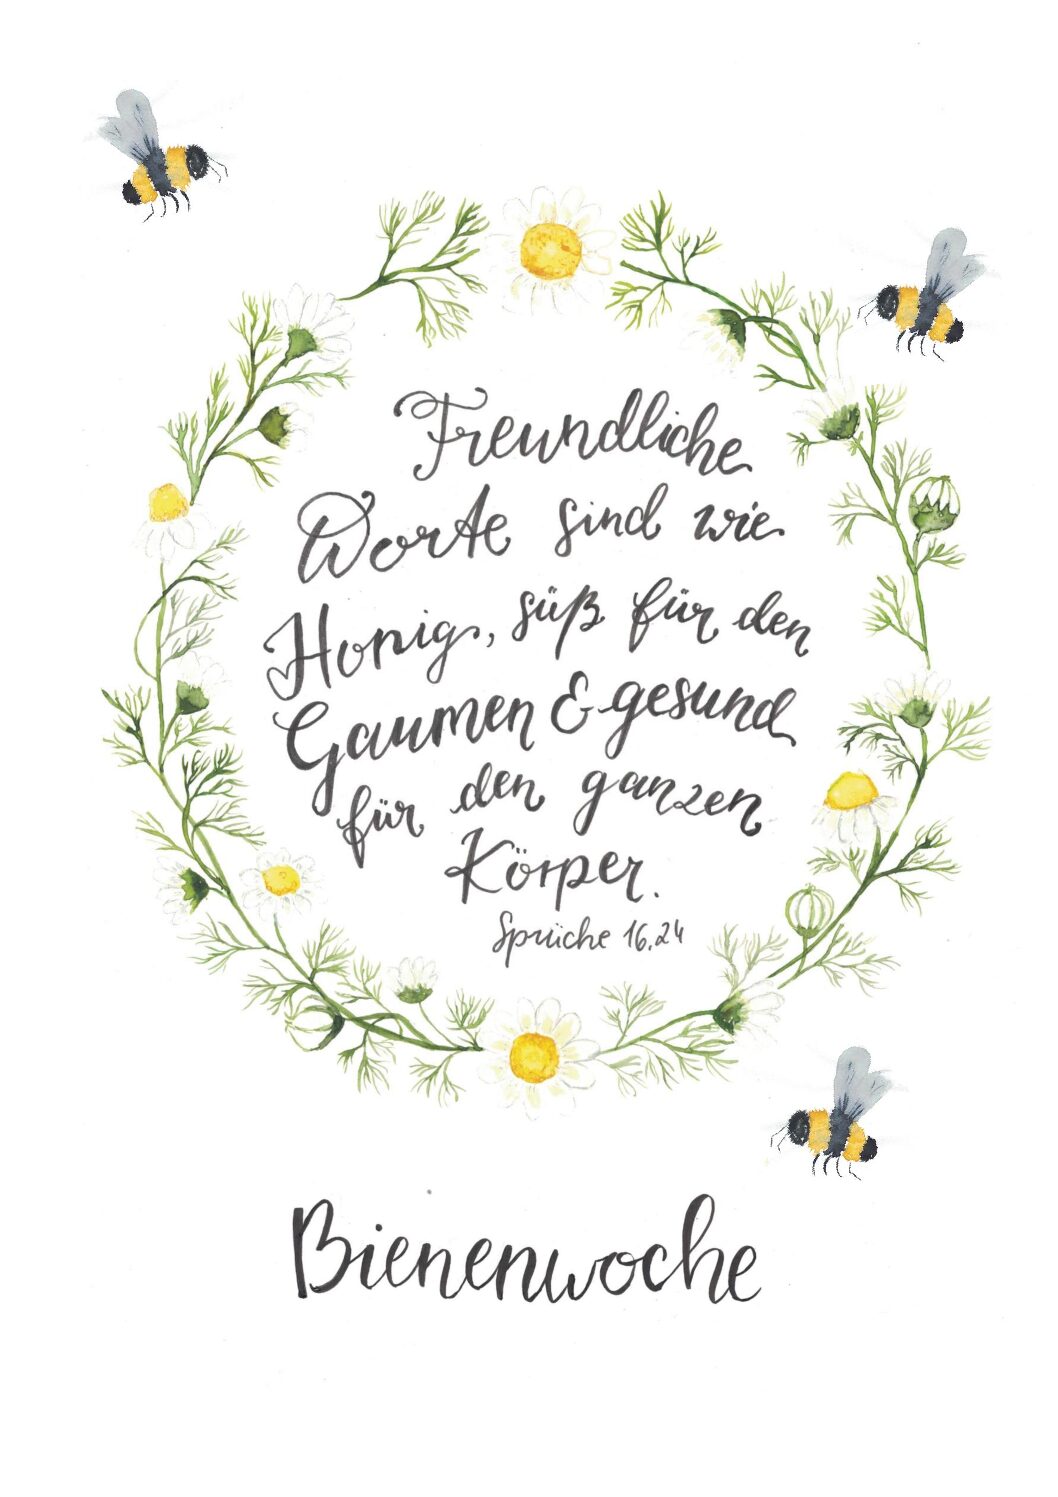 Freundliche
Worte sind wie
Honig, süß für den
Gaumen & gesund
für den ganzen
Körper.
Sprüche 16,24
Bienenwoche